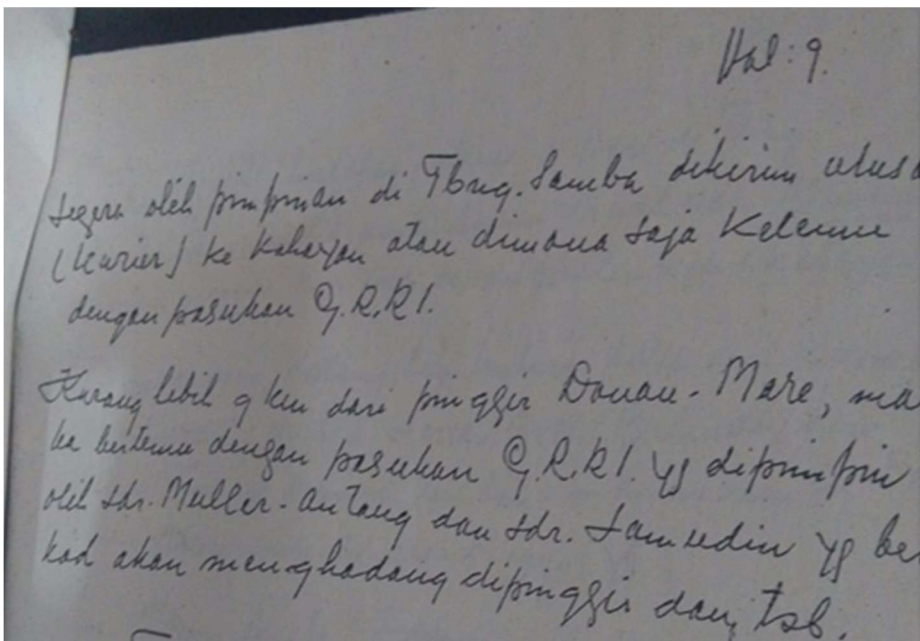 Hal: 9.
segera oleh pimpinan di Tbng. Samba dikirim utusa
(kurier) ke Kahayan atau dimana saja Ketemu
dengan pasukan G.R.R.I.
Kurang lebih 9 km dari pinggir Danau-Mare, ma
ka bertemu dengan pasukan G.R.R.I. yg dipimpin
oleh sdr. Muller-Antang dan sdr. Samudin yg be
kad akan menghadang dipinggir danau tsb.